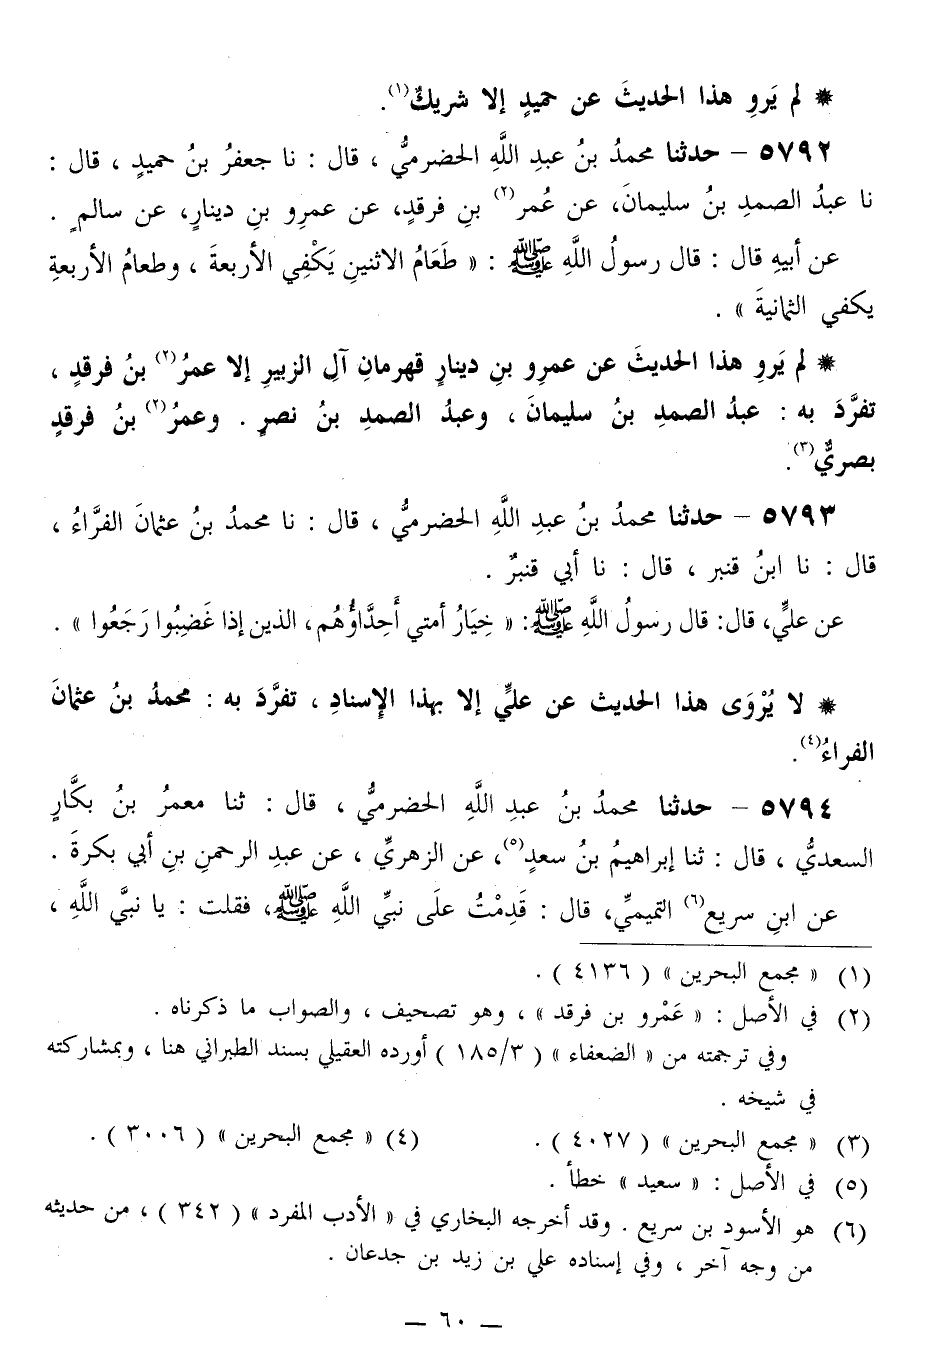 * لم يَروِ هذا الحديثَ عن حميدٍ إلا شريكٌ(١).
٥٧٩٢ – حدثنا محمدُ بنُ عبدِ اللَّهِ الحضرميُّ ، قال : نا جعفرُ بنُ حميدٍ ، قال :
نا عبدُ الصمدِ بنُ سليمانَ، عن عُمر(٢) بنِ فرقدٍ، عن عمرِو بنِ دينارٍ، عن سالمٍ .
عن أبيهِ قال : قال رسولُ اللَّهِ ﷺ : « طَعَامُ الاثنينِ يَكْفِي الأربعةَ ، وطعامُ الأربعةِ
يكفي الثمانيةَ » .
* لم يَروِ هذا الحديثَ عن عمرِو بنِ دينارٍ قهرمانِ آلِ الزبيرِ إلا عمرُ(٢) بنُ فرقدٍ ،
تفرَّدَ به : عبدُ الصمدِ بنُ سليمانَ ، وعبدُ الصمدِ بنُ نصرٍ . وعمرُ(٢) بنُ فرقدٍ
بصريٌّ(٣).
٥٧٩٣ – حدثنا محمدُ بنُ عبدِ اللَّهِ الحضرميُّ ، قال : نا محمدُ بنُ عثمانَ الفرَّاءُ ،
قال : نا ابنُ قنبر ، قال : نا أبي قنبرٌ .
عن عليٍّ، قال: قال رسولُ اللَّهِ ﷺ: « خِيَارُ أمتي أَحِدَّاؤُهُم، الذين إذا غَضِبُوا رَجَعُوا » .
* لا يُرْوَى هذا الحديث عن عليٍّ إلا بهذا الإسنادِ ، تفرَّدَ به : محمدُ بنُ عثمانَ
الفراءُ(٤).
٥٧٩٤ – حدثنا محمدُ بنُ عبدِ اللَّهِ الحضرميُّ ، قال : ثنا معمرُ بنُ بكَّارٍ
السعديُّ ، قال : ثنا إبراهيمُ بنُ سعدٍ(٥)، عن الزهريِّ ، عن عبدِ الرحمنِ بنِ أبي بكرةَ .
عن ابنِ سريع(٦) التميميِّ، قال : قَدِمْتُ علَى نبيِّ اللَّهِ ﷺ، فقلت : يا نبيَّ اللَّهِ ،
(١) « مجمع البحرين » ( ٤١٣٦ ) .
(٢) في الأصل : « عَمْرو بن فرقد » ، وهو تصحيف ، والصواب ما ذكرناه .
وفي ترجمته من « الضعفاء » ( ١٨٥/٣ ) أورده العقيلي بسند الطبراني هنا ، وبمشاركته
في شيخه .
(٣) « مجمع البحرين » ( ٤٠٢٧ ) . (٤) « مجمع البحرين » ( ٣٠٠٦ ) .
(٥) في الأصل : « سعيد » خطأ .
(٦) هو الأسود بن سريع . وقد أخرجه البخاري في « الأدب المفرد » ( ٣٤٢ ) ، من حديثه
من وجه آخر ، وفي إسناده علي بن زيد بن جدعان .
– ٦٠ –